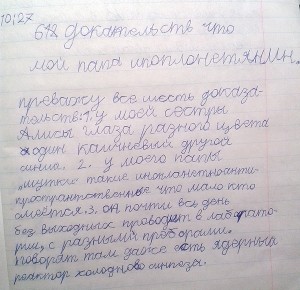 10:27
6 доказательств что
мой папа инопланетянин.
преважу все шесть доказа-
тельств: 1. у моей сестры
Алисы глаза разного цвета
один каричневый другой
синий. 2. у моего папы
шутки такие инопланетноанти-
пространственные что мало кто
смеётся. 3. он почти все день
без выходных проводит в лаборато-
рии, с разными приборами.
говорят там даже есть ядерный
реактор холодного синтоза.